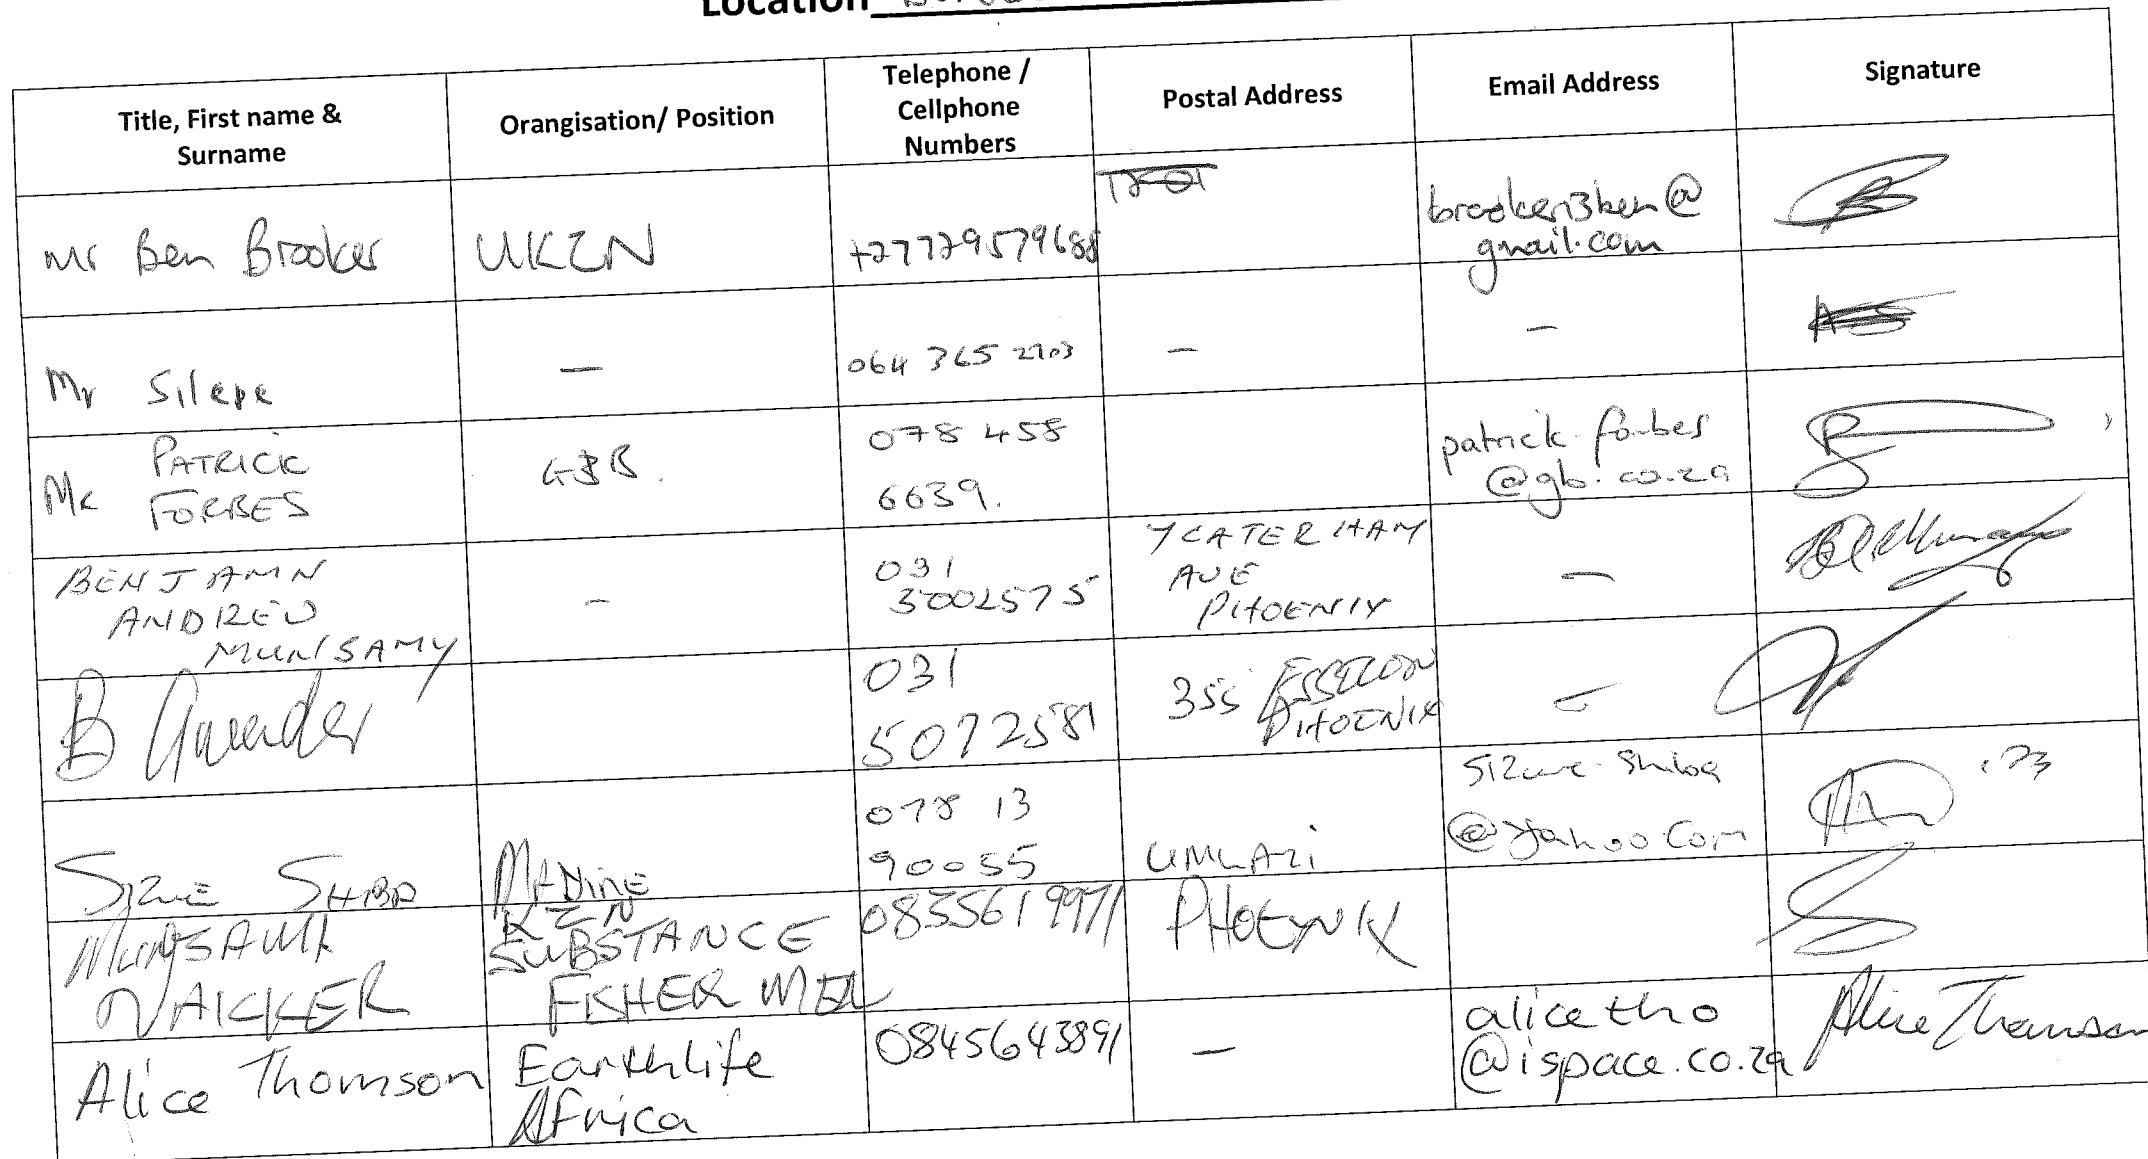 Location
Title, First name &
Surname
Orangisation/ Position
Telephone /
Cellphone
Numbers
Postal Address
Email Address
Signature
Mr Ben Brooker
UKZN
+27729579688
brooker3ben@
gmail.com
Mr Silepe
—
064 365 2703
—
—
Mr PATRICK
FORBES
GBB.
078 458
6639.
patrick.forbes
@gb.co.za
BENJAMN
ANDREW
MUNSAMY
-
031
5002575
7 CATERHAM
AVE
PHOENIX
—
B Govender
031
5072581
355
PHOENIX
-
SIZWE SHIBA
078 13
90055
UMLAZI
Sizwe.Shiba
@yahoo.com
MUNSAMI
NAICKER
KZN
SUBSTANCE
FISHERMEN
0835619971
PHOENIX
Alice Thomson
Earthlife
Africa
0845643891
—
alicetho
@ispace.co.za
Alice Thomson